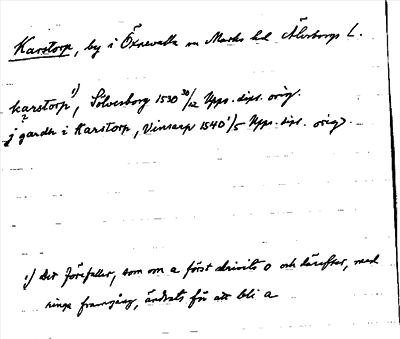 Karstorp, by i Öxnevalla sn Marks hd Älvsborgs L.
karstorp 1), Sölvesborg 1530 30/12 Upps. dipl. orig.
j gardh i Karstorp, Vinsarp 1540 1/5 Upps. dipl. orig.
2
1) Det förefaller, som om a först skrivits o och därefter, med
ringa framgång, ändrats för att bli a